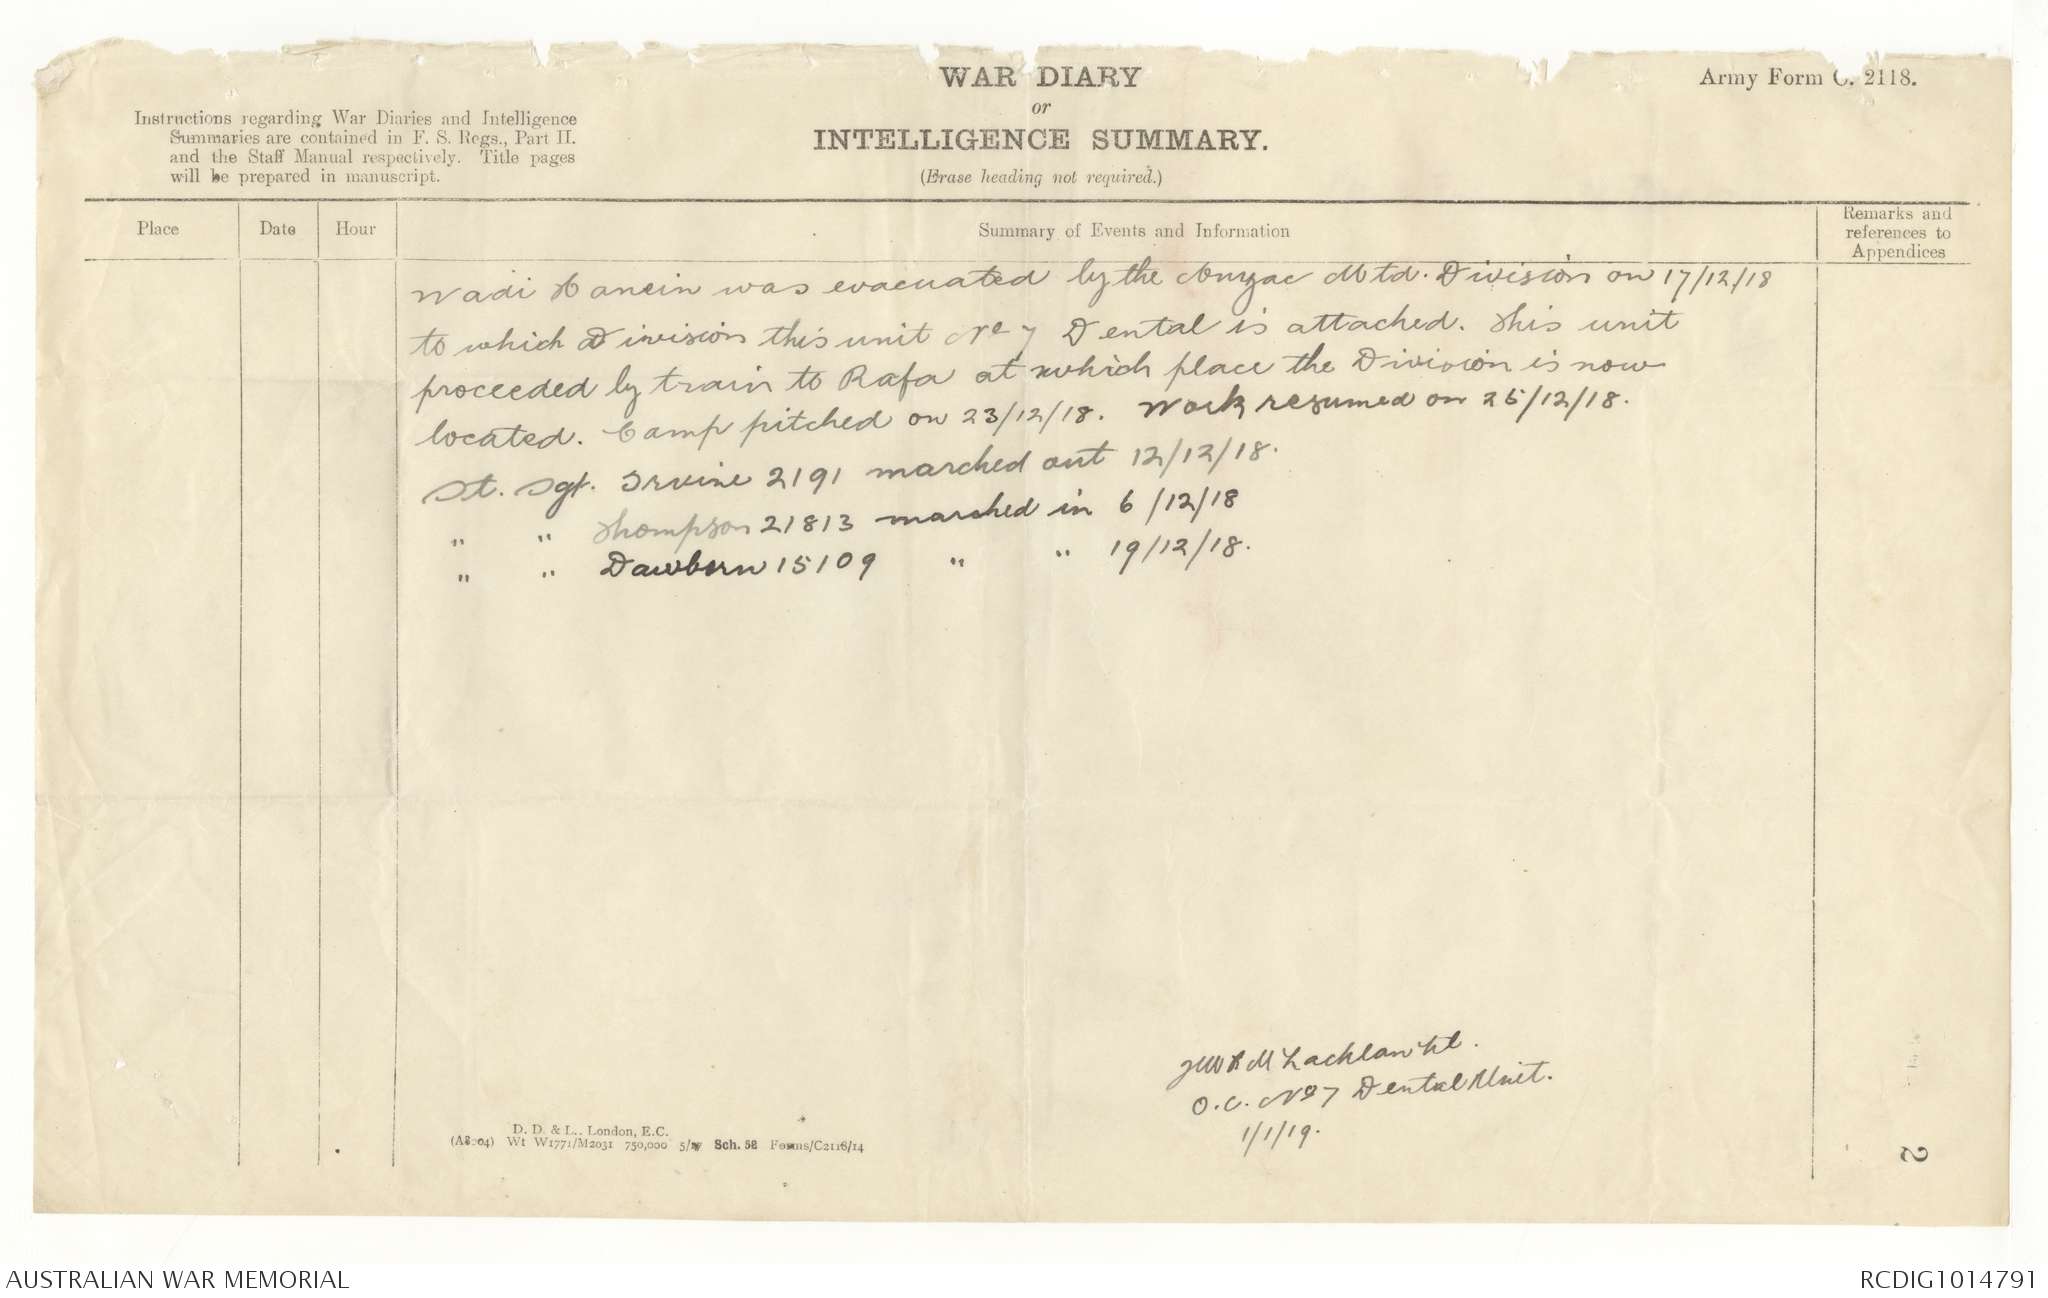 WAR DIARY
or
INTELLIGENCE SUMMARY.
(Erase heading not required.)
Army Form C. 2118.
Instructions regarding War Diaries and Intelligence
Summaries are contained in F. S. Regs., Part II.
and the Staff Manual respectively. Title pages
will be prepared in manuscript.
Place Date Hour Summary of Events and Information Remarks and references to Appendices
Wadi Hanein was evacuated by the Anzac Mtd. Division on 17/12/18
to which Division this unit No 7 Dental is attached. This unit
proceeded by train to Rafa at which place the Division is now
located. Camp pitched on 23/12/18. Work resumed on 25/12/18.
St. Sgt. Irvine 2191 marched out 12/12/18.
" " Thompson 21813 marched in 6/12/18
" " Dawborn 15109 " " 19/12/18.
Lachlan
O.C. No 7 Dental Unit.
1/1/19.
D. D. & L., London, E.C.
Wt W1771/M2031 750,000 5/17 Sch. 52 Forms/C2118/14
2
AUSTRALIAN WAR MEMORIAL
RCDIG1014791